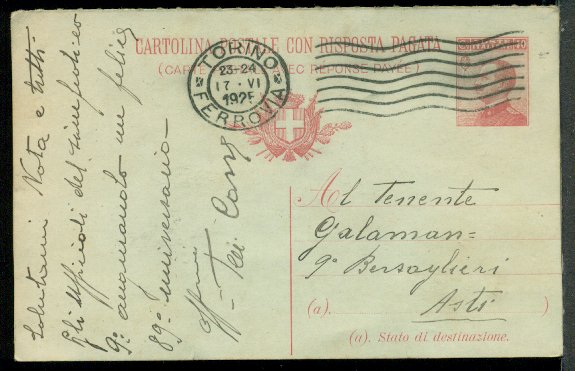 CARTOLINA POSTALE CON RISPOSTA PAGATA
(CARTE POSTALE AVEC RÉPONSE PAYÉE)
TORINO
23-24
17·VI
1925
FERROVIA
Al Tenente
Galaman=
9º Bersaglieri
(a). Asti )
(a). Stato di destinazione.
Salutami Nota e tutti
gli ufficiali del simpatico
9º augurando un felice
89º anniversario